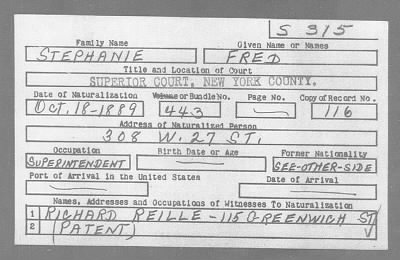 S 315
Family Name Given Name or Names
STEPHANIE FRED
Title and Location of Court
SUPERIOR COURT, NEW YORK COUNTY.
Date of Naturalization Volume or Bundle No. Page No. Copy of Record No.
Oct. 18-1889 443 116
Address of Naturalized Person
308 W. 27 ST.
Occupation Birth Date or Age Former Nationality
SUPERINTENDENT SEE-OTHER-SIDE
Port of Arrival in the United States Date of Arrival
Names, Addresses and Occupations of Witnesses To Naturalization
1 RICHARD REILLE - 115 GREENWICH ST
2 (PATENT)